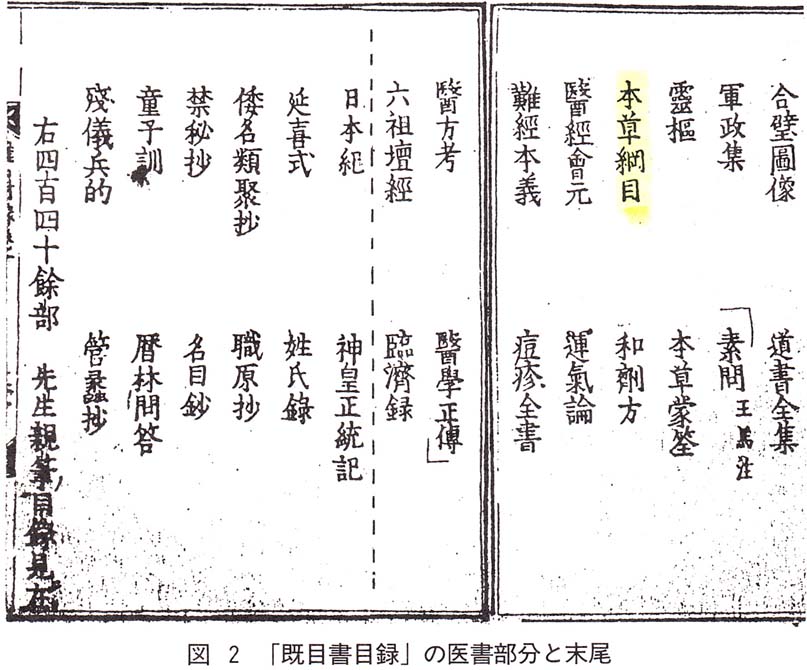 合璧圖像　道書全集
軍政集　「素問 王馬注
靈樞　本草蒙筌
本草綱目　和劑方
醫經會元　運氣論
難經本義　痘疹全書
醫方考　醫學正傳」
六祖壇經　臨濟録
日本紀　神皇正統記
延喜式　姓氏錄
倭名類聚抄　職原抄
禁秘抄　名目鈔
童子訓　暦林問答
殘儀兵的　管蠡抄
右四百四十餘部　先生親筆目錄見在
図 2 「既目書目録」の医書部分と末尾